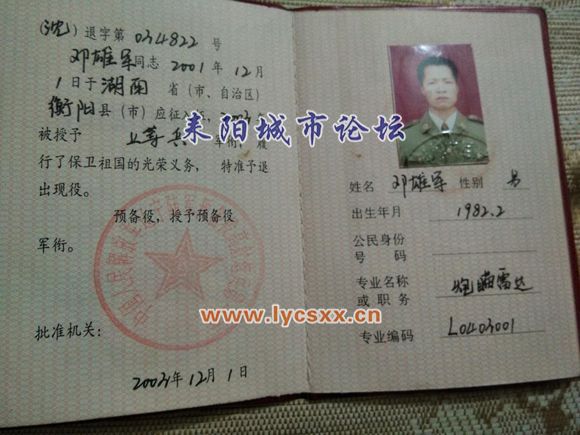 (沈) 退字第 034822 号
邓雄军同志 2001 年 12 月
1 日于 湖南 省(市、自治区)
衡阳 县(市)应征入
被授予 上等兵 军衔, 履
行了保卫祖国的光荣义务, 特准予退
出现役。
预备役, 授予预备役
军衔。
批准机关:
2003年 12月 1日
姓名 邓雄军 性别 男
出生年月 1982.2
公民身份
号 码
专业名称
或 职 务 炮瞄雷达
专业编码 L0403001
耒阳城市论坛
www.lycsxx.cn